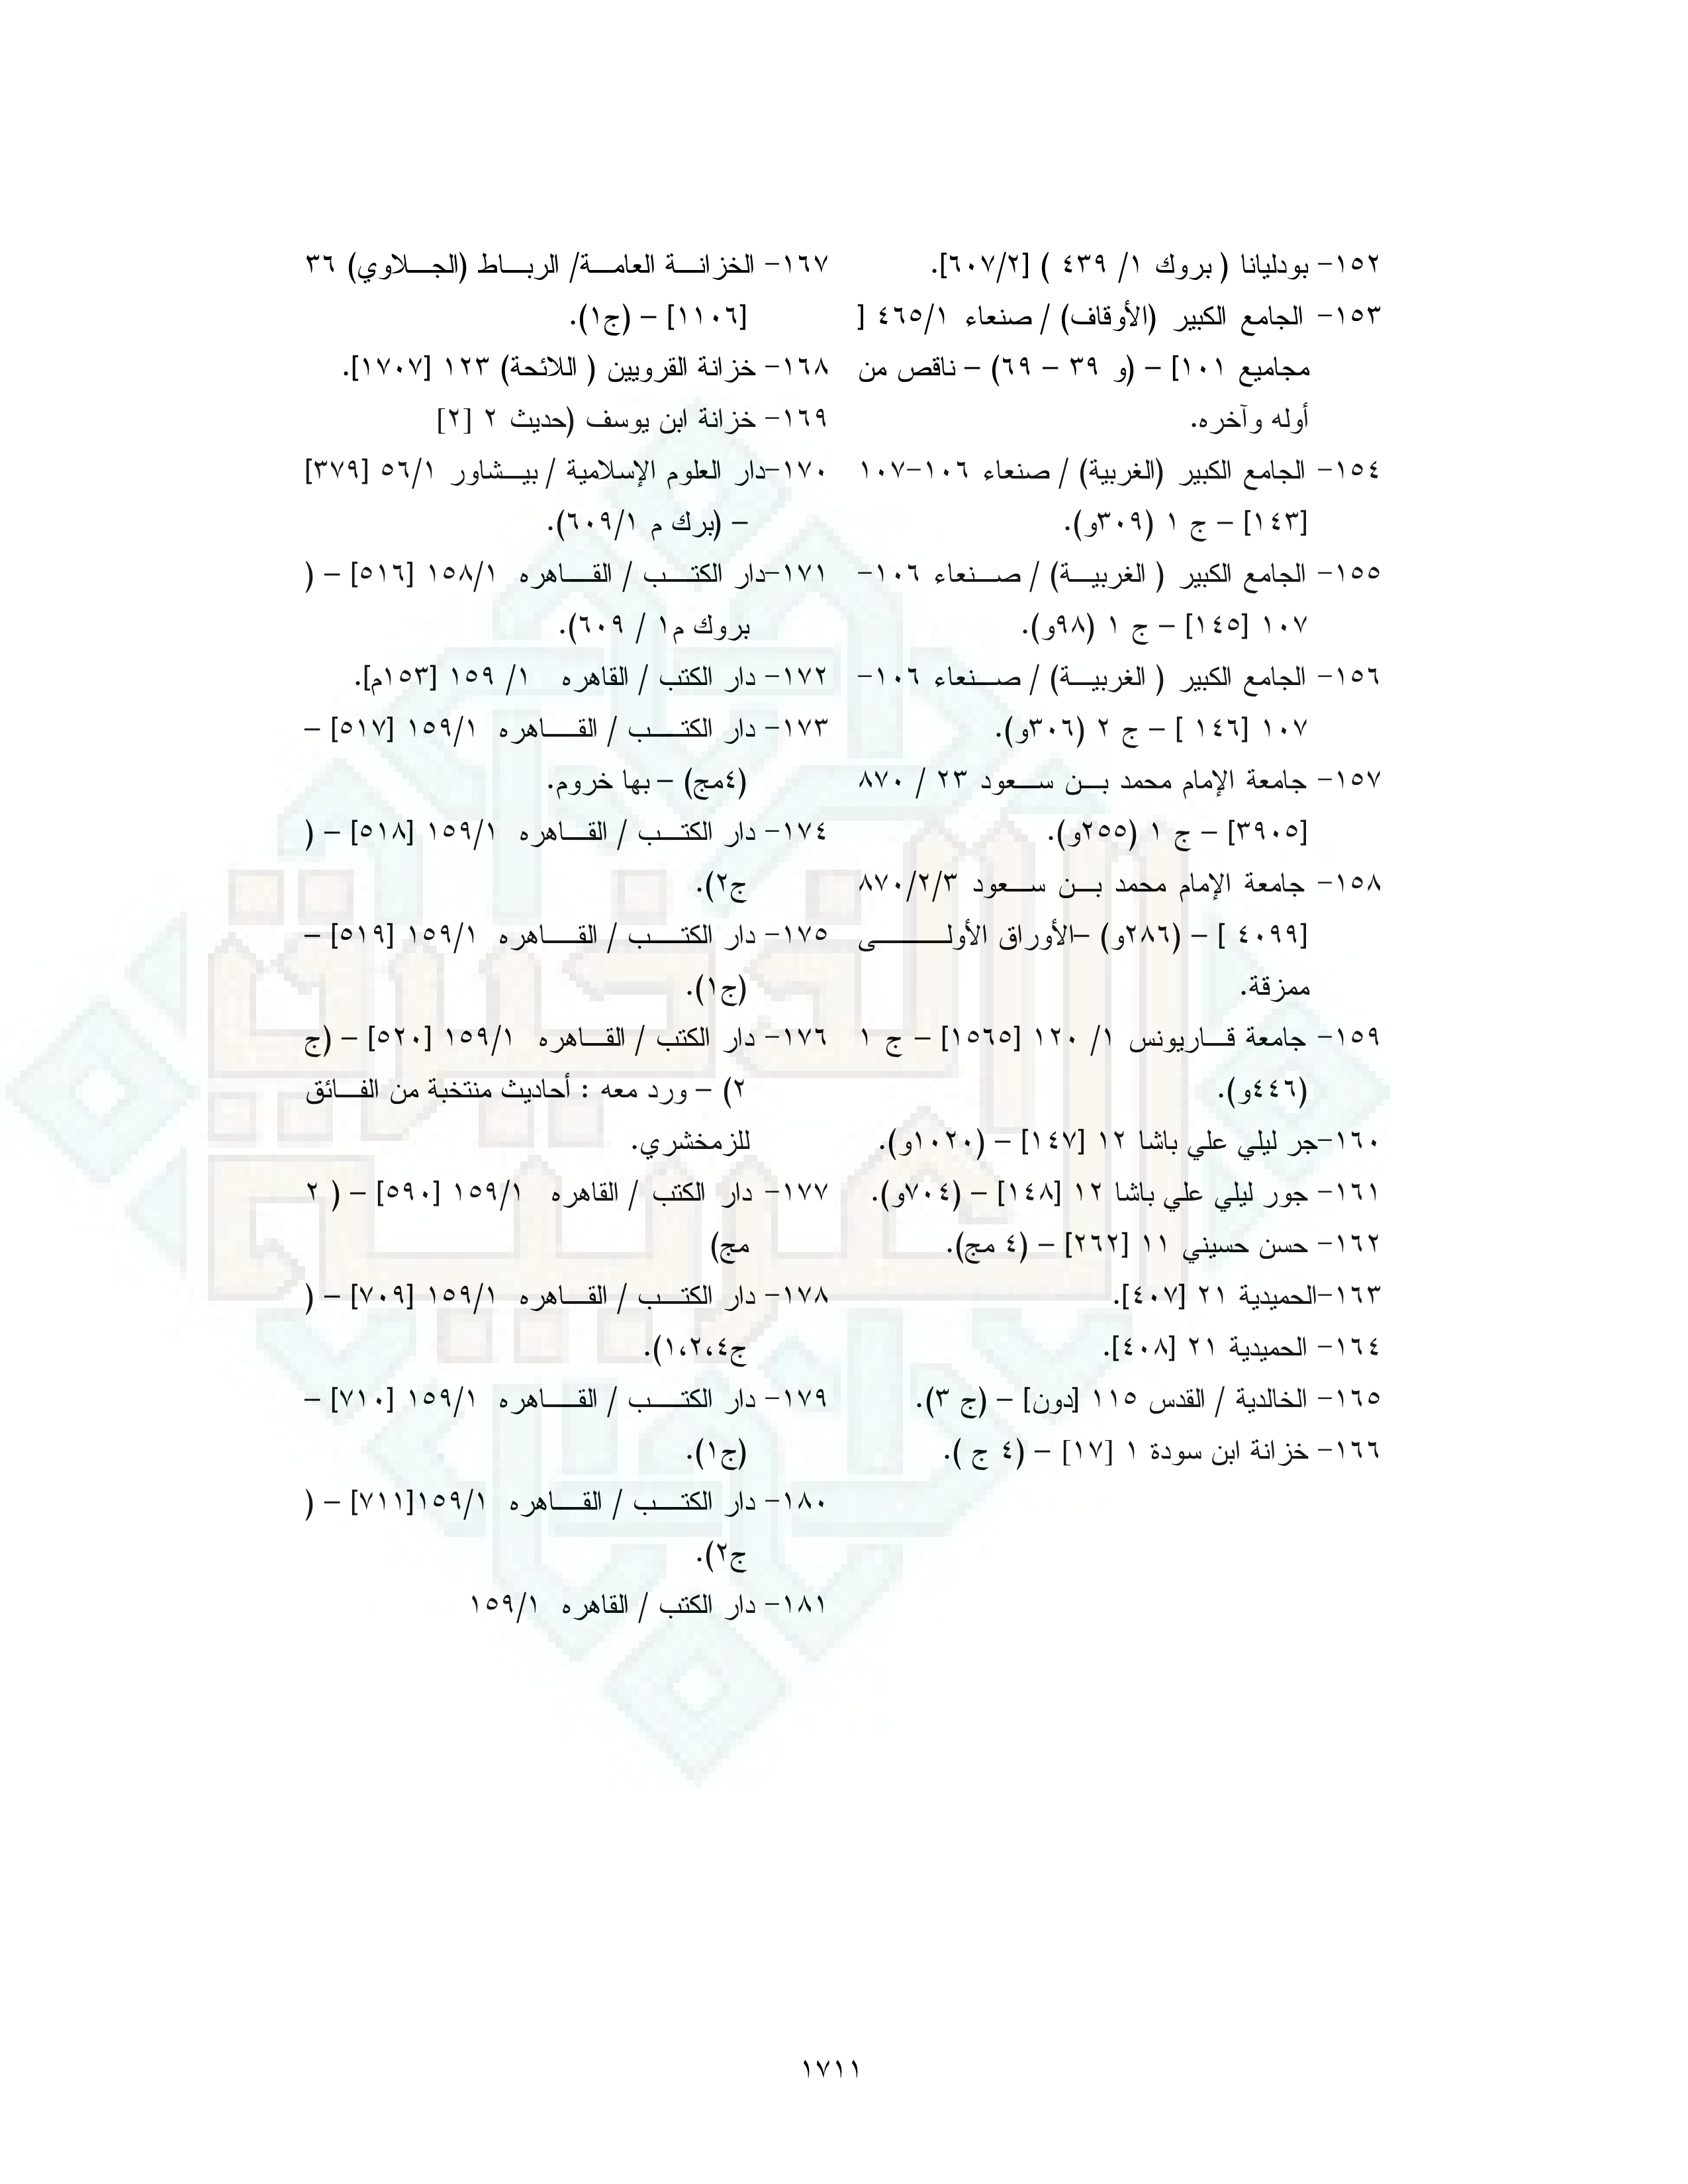 ١٥٢- بودليانا ( بروك ١/ ٤٣٩ ) [٦٠٧/٢].
١٥٣- الجامع الكبير (الأوقاف) / صنعاء ٤٦٥/١ [
مجاميع ١٠١] – (و ٣٩ – ٦٩) – ناقص من
أوله وآخره.
١٥٤- الجامع الكبير (الغربية) / صنعاء ١٠٦-١٠٧
[١٤٣] – ج ١ (٣٠٩و).
١٥٥- الجامع الكبير ( الغربيـة) / صـنعاء ١٠٦-
١٠٧ [١٤٥] – ج ١ (٩٨و).
١٥٦- الجامع الكبير ( الغربيـة) / صـنعاء ١٠٦-
١٠٧ [١٤٦ ] – ج ٢ (٣٠٦و).
١٥٧- جامعة الإمام محمد بـن سـعود ٢٣ / ٨٧٠
[٣٩٠٥] – ج ١ (٢٥٥و).
١٥٨- جامعة الإمام محمد بـن سـعود ٨٧٠/٢/٣
[٤٠٩٩ ] – (٢٨٦و) –الأوراق الأولـــى
ممزقة.
١٥٩- جامعة قـاريونس ١/ ١٢٠ [١٥٦٥] – ج ١
(٤٤٦و).
١٦٠-جر ليلي علي باشا ١٢ [١٤٧] – (١٠٢٠و).
١٦١- جور ليلي علي باشا ١٢ [١٤٨] – (٧٠٤و).
١٦٢- حسن حسيني ١١ [٢٦٢] – (٤ مج).
١٦٣-الحميدية ٢١ [٤٠٧].
١٦٤- الحميدية ٢١ [٤٠٨].
١٦٥- الخالدية / القدس ١١٥ [دون] – (ج ٣).
١٦٦- خزانة ابن سودة ١ [١٧] – (٤ ج ).
١٦٧- الخزانـة العامـة/ الربـاط (الجـلاوي) ٣٦
[١١٠٦] – (ج١).
١٦٨- خزانة القرويين ( اللائحة) ١٢٣ [١٧٠٧].
١٦٩- خزانة ابن يوسف (حديث ٢ [٢]
١٧٠-دار العلوم الإسلامية / بيـشاور ٥٦/١ [٣٧٩]
– (برك م ٦٠٩/١).
١٧١-دار الكتـب / القـاهره ١٥٨/١ [٥١٦] – (
بروك م١ / ٦٠٩).
١٧٢- دار الكتب / القاهره ١/ ١٥٩ [١٥٣م].
١٧٣- دار الكتـب / القـاهره ١٥٩/١ [٥١٧] –
(٤مج) – بها خروم.
١٧٤- دار الكتـب / القـاهره ١٥٩/١ [٥١٨] – (
ج٢).
١٧٥- دار الكتـب / القـاهره ١٥٩/١ [٥١٩] –
(ج١).
١٧٦- دار الكتب / القـاهره ١٥٩/١ [٥٢٠] – (ج
٢) – ورد معه : أحاديث منتخبة من الفـائق
للزمخشري.
١٧٧- دار الكتب / القاهره ١٥٩/١ [٥٩٠] – ( ٢
مج)
١٧٨- دار الكتـب / القـاهره ١٥٩/١ [٧٠٩] – (
ج١،٢،٤).
١٧٩- دار الكتـب / القـاهره ١٥٩/١ [٧١٠] –
(ج١).
١٨٠- دار الكتـب / القـاهره ١٥٩/١[٧١١] – (
ج٢).
١٨١- دار الكتب / القاهره ١٥٩/١
١٧١١